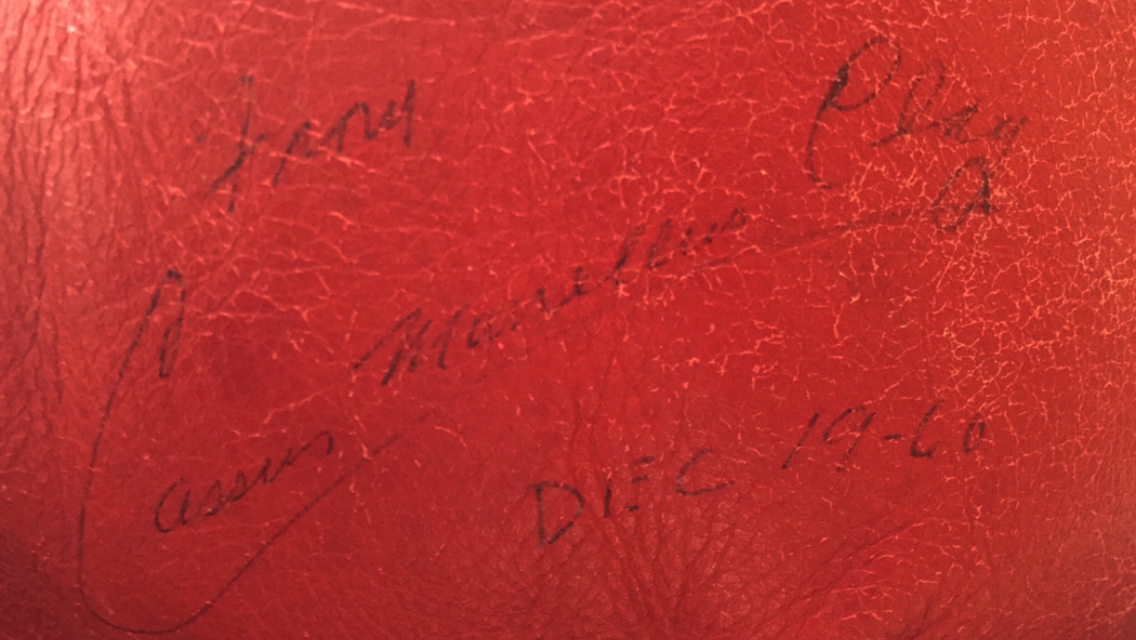 From
Cassius Marcellus Clay
DEC 19-60